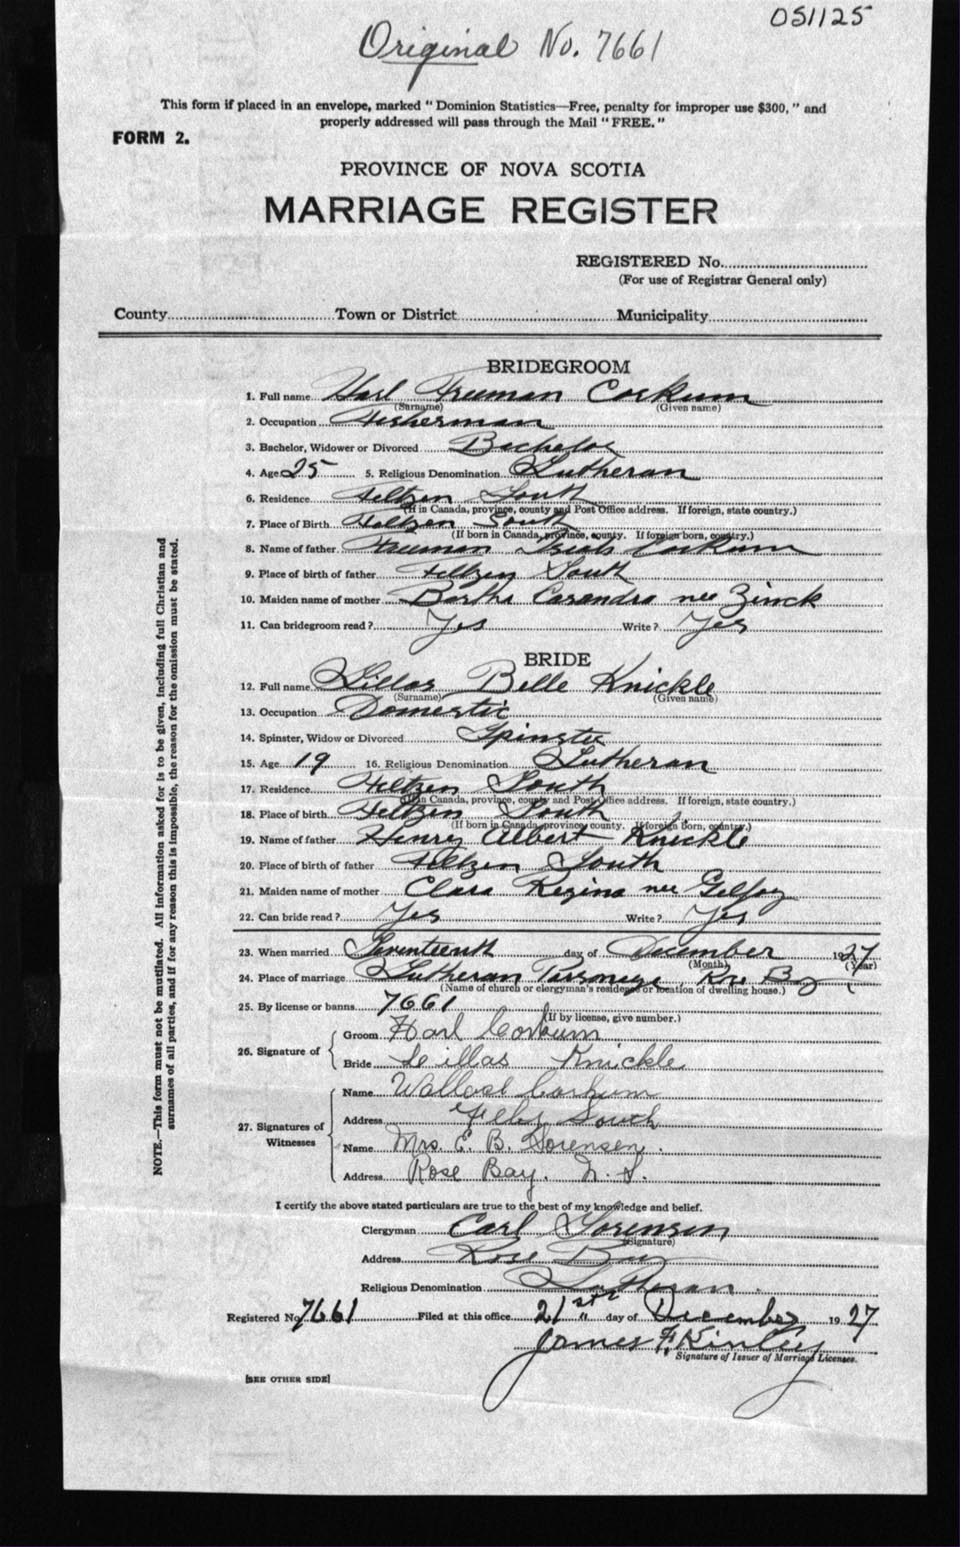 051125
Original No. 7661
This form if placed in an envelope, marked "Dominion Statistics—Free, penalty for improper use $300," and
properly addressed will pass through the Mail "FREE."
FORM 2.
PROVINCE OF NOVA SCOTIA
MARRIAGE REGISTER
REGISTERED No.
(For use of Registrar General only)
County Town or District Municipality
BRIDEGROOM
1. Full name Harl Freeman Corkum
(Surname) (Given name)
2. Occupation Fisherman
3. Bachelor, Widower or Divorced Bachelor
4. Age 25 5. Religious Denomination Lutheran
6. Residence Feltzen South
(If in Canada, province, county and Post Office address. If foreign, state country.)
7. Place of Birth Feltzen South
(If born in Canada, province, county. If foreign born, country.)
8. Name of father Freeman Corkum
9. Place of birth of father Feltzen South
10. Maiden name of mother Bertha Casandra nee Zinck
11. Can bridegroom read? Yes Write? Yes
BRIDE
12. Full name Lillas Belle Knickle
(Surname) (Given name)
13. Occupation Domestic
14. Spinster, Widow or Divorced Spinster
15. Age 19 16. Religious Denomination Lutheran
17. Residence Feltzen South
(If in Canada, province, county and Post Office address. If foreign, state country.)
18. Place of birth Feltzen South
(If born in Canada, province, county. If foreign born, country.)
19. Name of father Henry Albert Knickle
20. Place of birth of father Feltzen South
21. Maiden name of mother Clara Regina nee
22. Can bride read? Yes Write? Yes
23. When married Seventeenth day of December 1927
(Month) (Year)
24. Place of marriage Lutheran Parsonage, Rose Bay
(Name of church or clergyman's residence or location of dwelling house.)
25. By license or banns 7661
(If by license, give number.)
26. Signature of
Groom Harl Corkum
Bride Lillas Knickle
27. Signatures of Witnesses
Name Wallace Corkum
Address South
Name Mrs. E. B. Sorensen.
Address Rose Bay. N. S.
I certify the above stated particulars are true to the best of my knowledge and belief.
Clergyman Carl Sorensen
(Signature)
Address Rose Bay
Religious Denomination Lutheran.
Registered No. 7661 Filed at this office 21st day of December 1927
James F. Kinley
Signature of Issuer of Marriage Licenses.
[SEE OTHER SIDE]
NOTE.—This form must not be mutilated. All information asked for is to be given, including full Christian and
surnames of all parties, and if for any reason this is impossible, the reason for the omission must be stated.